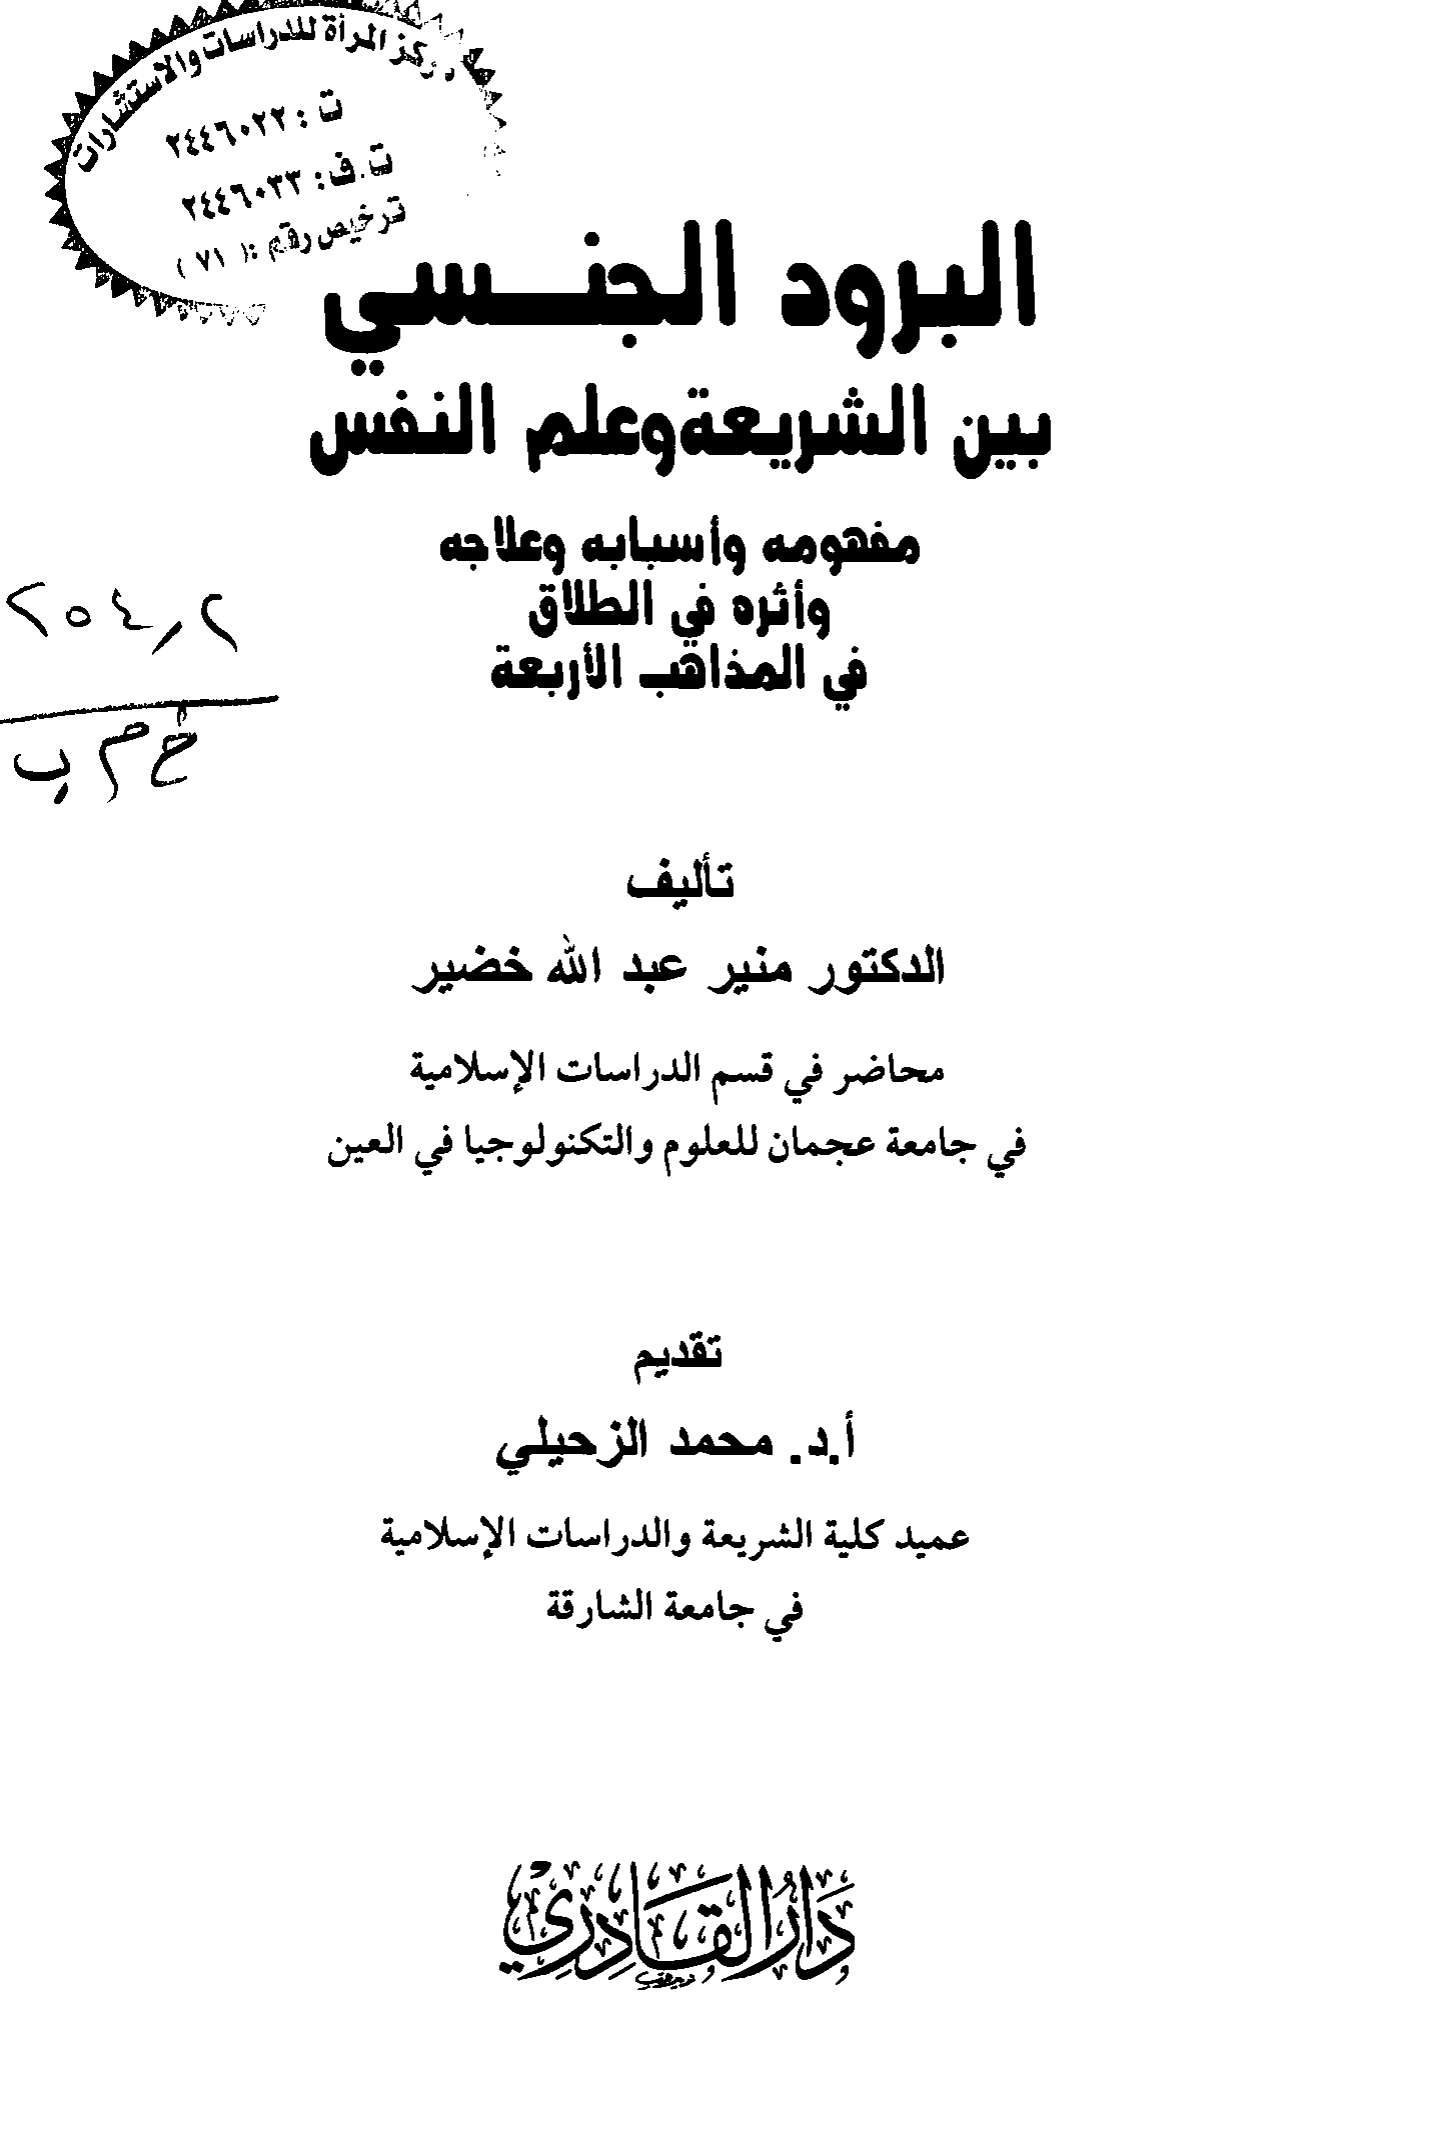 مركز المرأة للدراسات والاستشارات
ت : ٢٤٤٦٠٢٢
ت.ف: ٢٤٤٦٠٣٣
ترخيص رقم :( ٧١ )
البرود الجنسي
بين الشريعة وعلم النفس
مفهومه وأسبابه وعلاجه
وأثره في الطلاق
في المذاهب الأربعة
٢٥٤,٢
خ م ب
تأليف
الدكتور منير عبد الله خضير
محاضر في قسم الدراسات الإسلامية
في جامعة عجمان للعلوم والتكنولوجيا في العين
تقديم
أ.د. محمد الزحيلي
عميد كلية الشريعة والدراسات الإسلامية
في جامعة الشارقة
دَارُ القَادِرِيْ